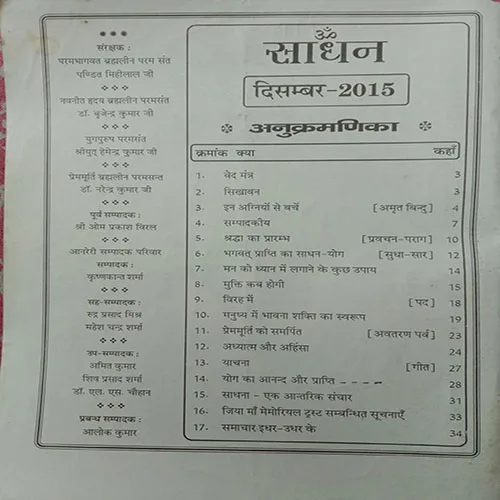 संरक्षक :
परमभागवत ब्रह्मलीन परम संत
पण्डित मिहीलाल जी
नवनीत हृदय ब्रह्मलीन परमसंत
डॉ. बृजेन्द्र कुमार जी
युगपुरुष परमसंत
श्रीयुत् हेमेन्द्र कुमार जी
प्रेममूर्ति ब्रह्मलीन परमसन्त
डॉ. नरेन्द्र कुमार जी
पूर्व सम्पादक :
श्री ओम प्रकाश विरल
आनरेरी सम्पादक परिवार
सम्पादक :
कृष्णकान्त शर्मा
सह-सम्पादक :
रुद्र प्रसाद मिश्र
महेश चन्द्र शर्मा
उप-सम्पादक :
अमित कुमार
शिव प्रसाद शर्मा
डॉ. एल. एस. चौहान
प्रबन्ध सम्पादक :
आलोक कुमार
ॐ
साधन
दिसम्बर-2015
अनुक्रमणिका
क्रमांक क्या कहाँ
1. वेद मंत्र 3
2. सिखावन 3
3. इन अग्नियों से बचें [अमृत बिन्दु] 4
4. सम्पादकीय 7
5. श्रद्धा का प्रारम्भ [प्रवचन-पराग] 10
6. भगवत् प्राप्ति का साधन-योग [सुधा-सार] 12
7. मन को ध्यान में लगाने के कुछ उपाय 14
8. मुक्ति कब होगी 15
9. विरह में [पद] 18
10. मनुष्य में भावना शक्ति का स्वरूप 19
11. प्रेममूर्ति को समर्पित [अवतरण पर्व] 23
12. अध्यात्म और अहिंसा 24
13. याचना [गीत] 27
14. योग का आनन्द और प्राप्ति - - - - 28
15. साधना - एक आन्तरिक संचार 31
16. जिया माँ मेमोरियल ट्रस्ट सम्बन्धित सूचनाएँ 33
17. समाचार इधर-उधर के 34